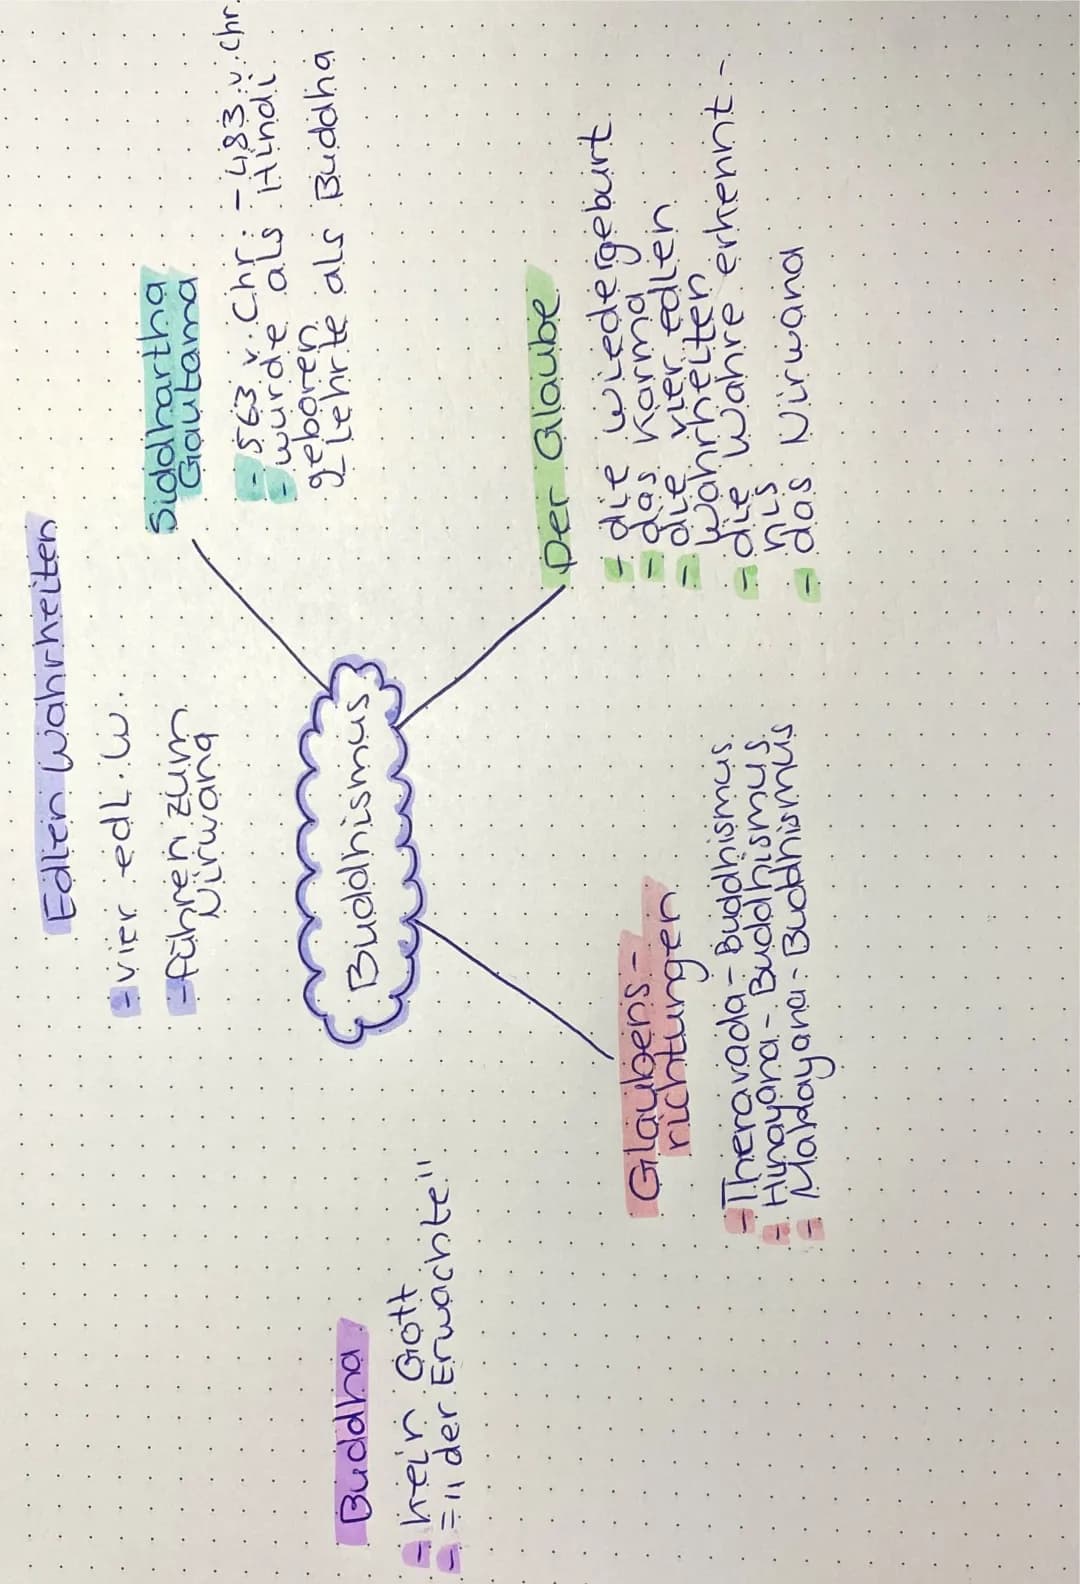 Edlen Wahrheiten
- vier edl. W.
- führen zum
Nirwana
Siddhartha
Gautama
- 563 v. Chr. - 483 v. Chr.
- wurde als Hindi
geboren
- Lehrte als Buddha
Buddhismus
Buddha
- kein Gott
- = „der Erwachte"
Der Glaube
- die Wiedergeburt
- das Karma
- die vier edlen
Wahrheiten
- die Wahre erkennt-
nis
- das Nirwana
Glaubens-
richtungen
- Theravada-Buddhismus
- Hinayana-Buddhismus
- Mahayana-Buddhismus